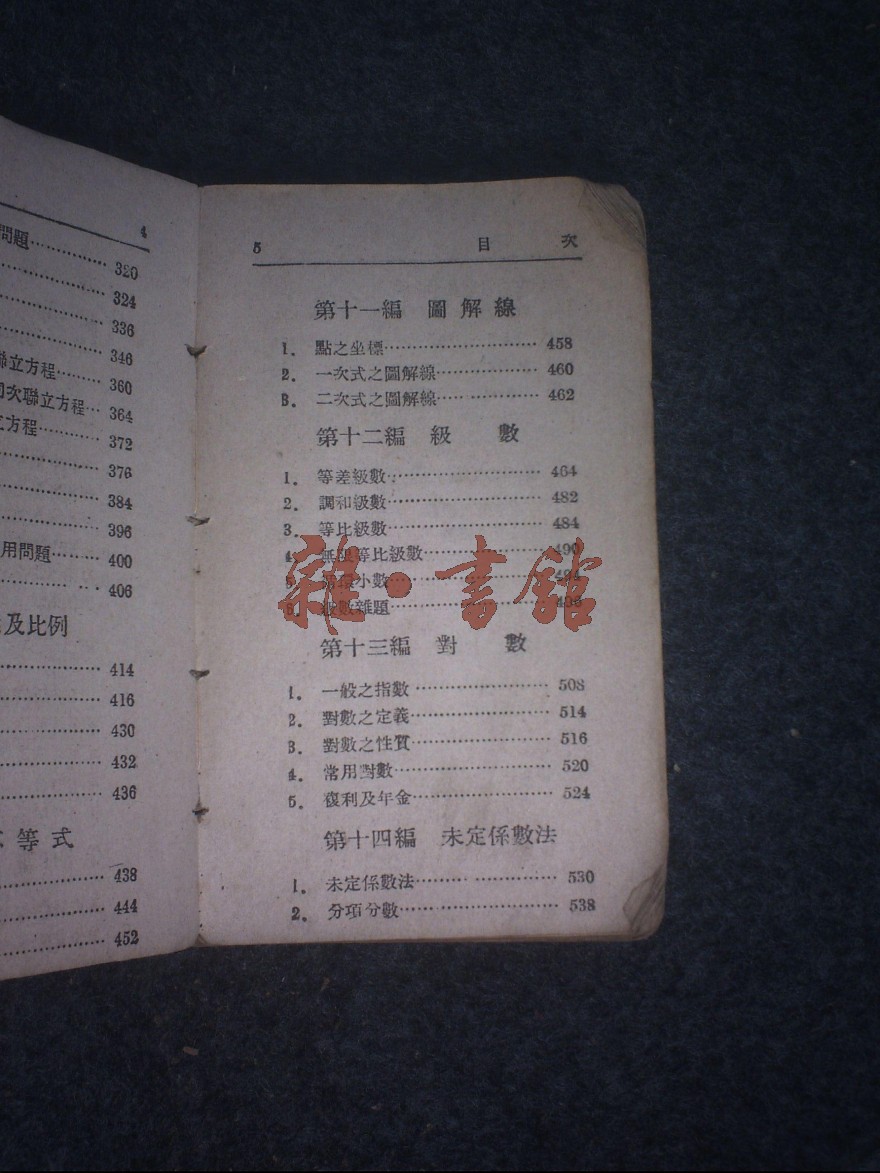 4
問題 320
324
336
346
聯立方程 360
次聯立方程 364
立方程 372
376
384
396
用問題 400
406
及比例
414
416
430
432
436
等式
438
444
452
5 目 次
第十一編 圖解線
1. 點之坐標 458
2. 一次式之圖解線 460
3. 二次式之圖解線 462
第十二編 級 數
1. 等差級數 464
2. 調和級數 482
3. 等比級數 484
4. 無限等比級數 490
5. 循環小數 494
6. 級數雜題
雜·書館
第十三編 對 數
1. 一般之指數 508
2. 對數之定義 514
3. 對數之性質 516
4. 常用對數 520
5. 複利及年金 524
第十四編 未定係數法
1. 未定係數法 530
2. 分項分數 538